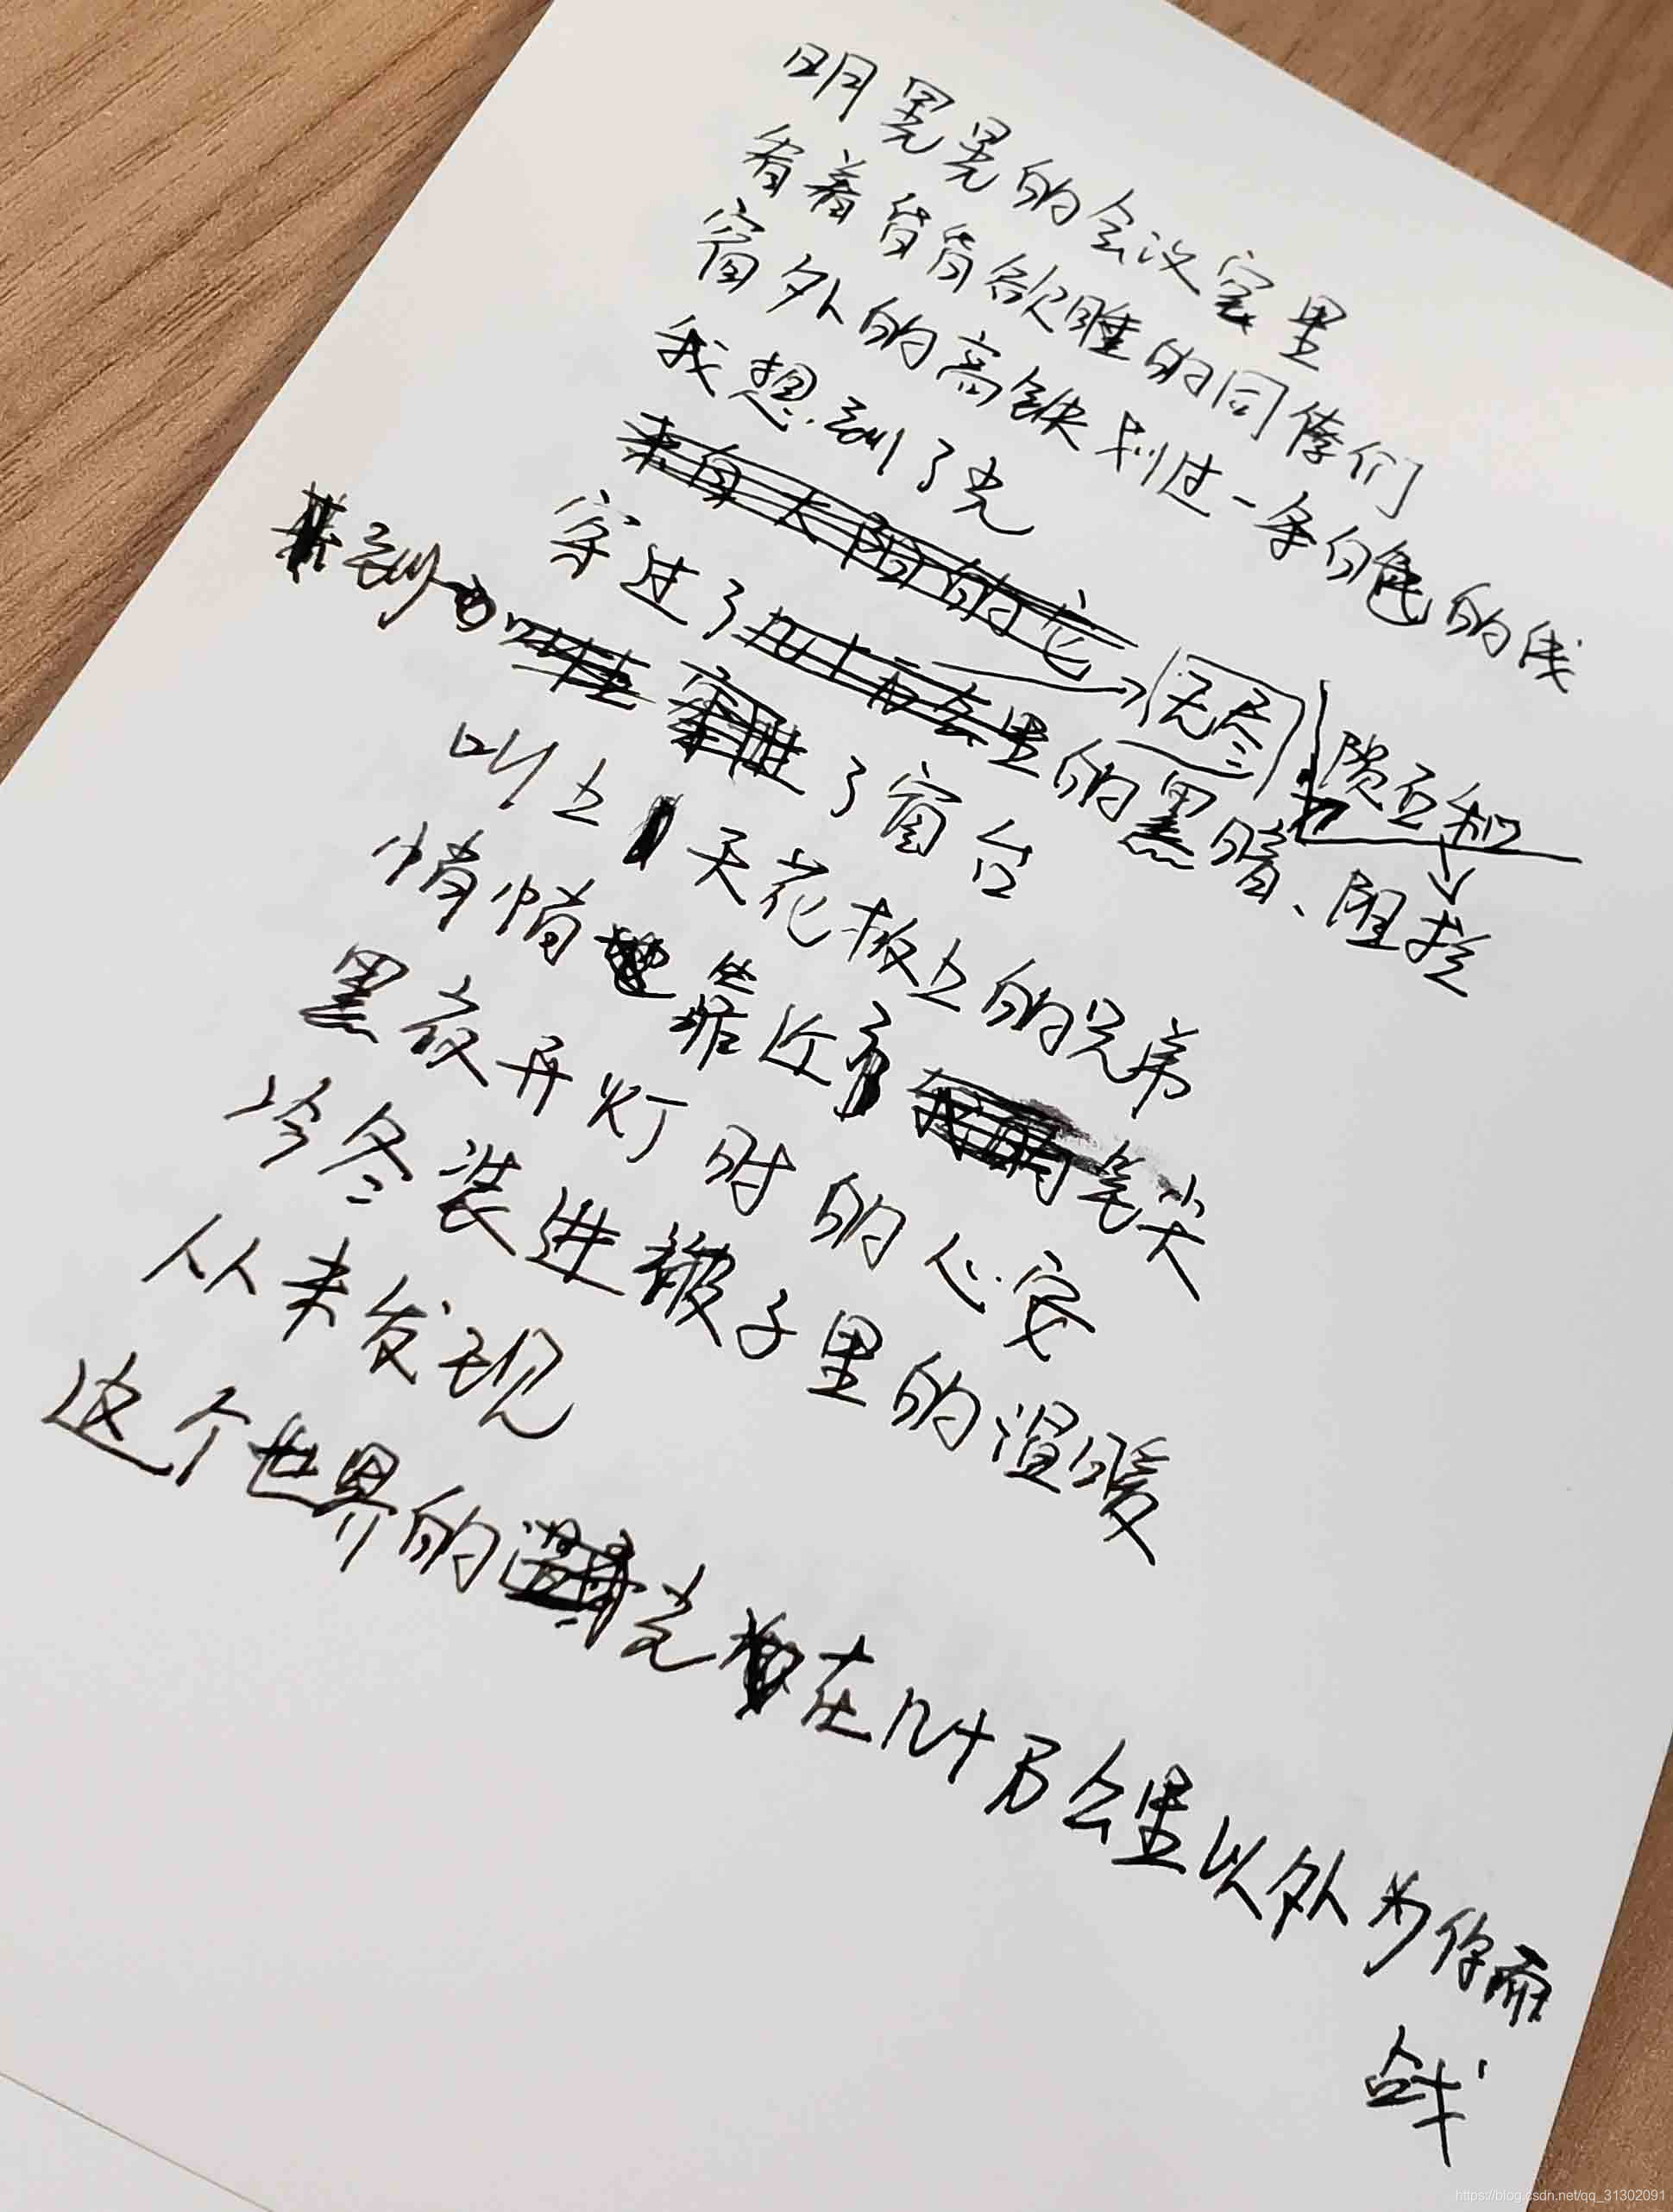 明晃晃的会议室里
看着昏昏欲睡的同僚们
窗外的高铁划过一条白色的线
我想到了光
来自太阳的它
穿过了里的黑暗、阻拦
无尽
陨石和
到了窗台
叫上天花板上的兄弟
悄悄靠近了笔尖
黑夜开灯时的心安
冷冬装进被子里的温暖
从未发现
这个世界的光在几十万公里以外为你而
战
https://blog.csdn.net/qq_31302091